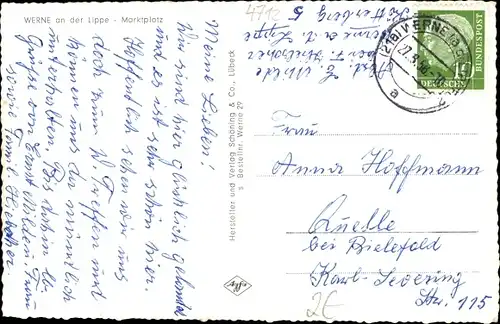 WERNE an der Lippe - Marktplatz
4712
Meine Lieben!
Wir sind hier glücklich gelandet
und es ist sehr schön hier.
Hoffentlich sehen wir uns
doch zum Treffen und
können uns da mündlich
unterhalten. Bis dahin
Grüße von Ernst Milden
Familie
Hersteller und Verlag Schöning & Co., Lübeck
s Bestellnr. Werne 29
Abs. E. Milde
Werne a. d. Lippe
5
WERNE
a
10
DEUTSCHE
BUNDESPOST
Frau
Anna Hoffmann
Quelle
bei Bielefeld
Karl-Severing
Str. 115
2€